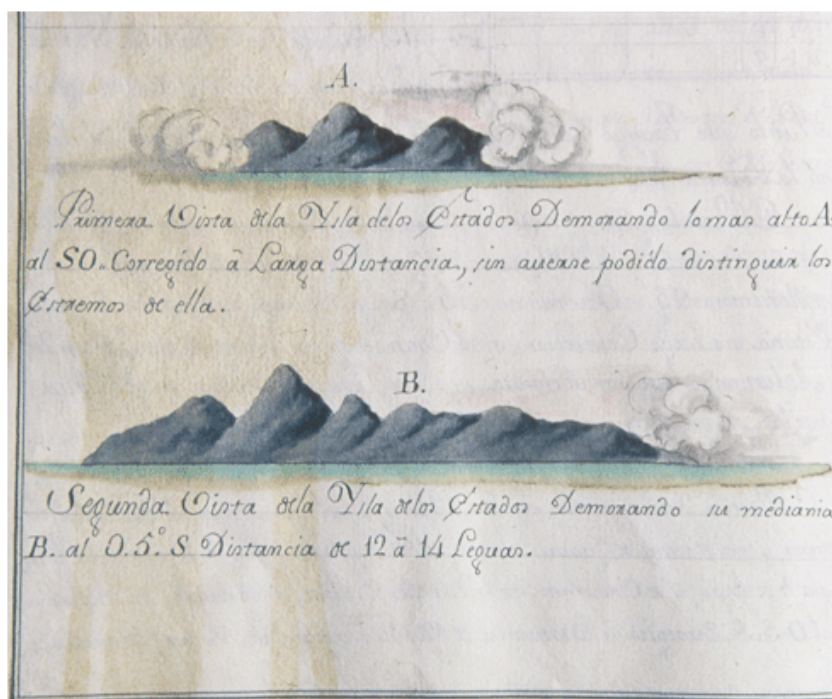 A.
Primera Vista dela Ysla delos Estados Demorando lo mas alto A.
al SO. Corregido â Larga Distancia, sin auerse podido distinguir los
Estremos de ella.
B.
Segunda Vista dela Ysla delos Estados Demorando su mediania
B. al O.5.º S Distancia de 12 â 14 Leguas.